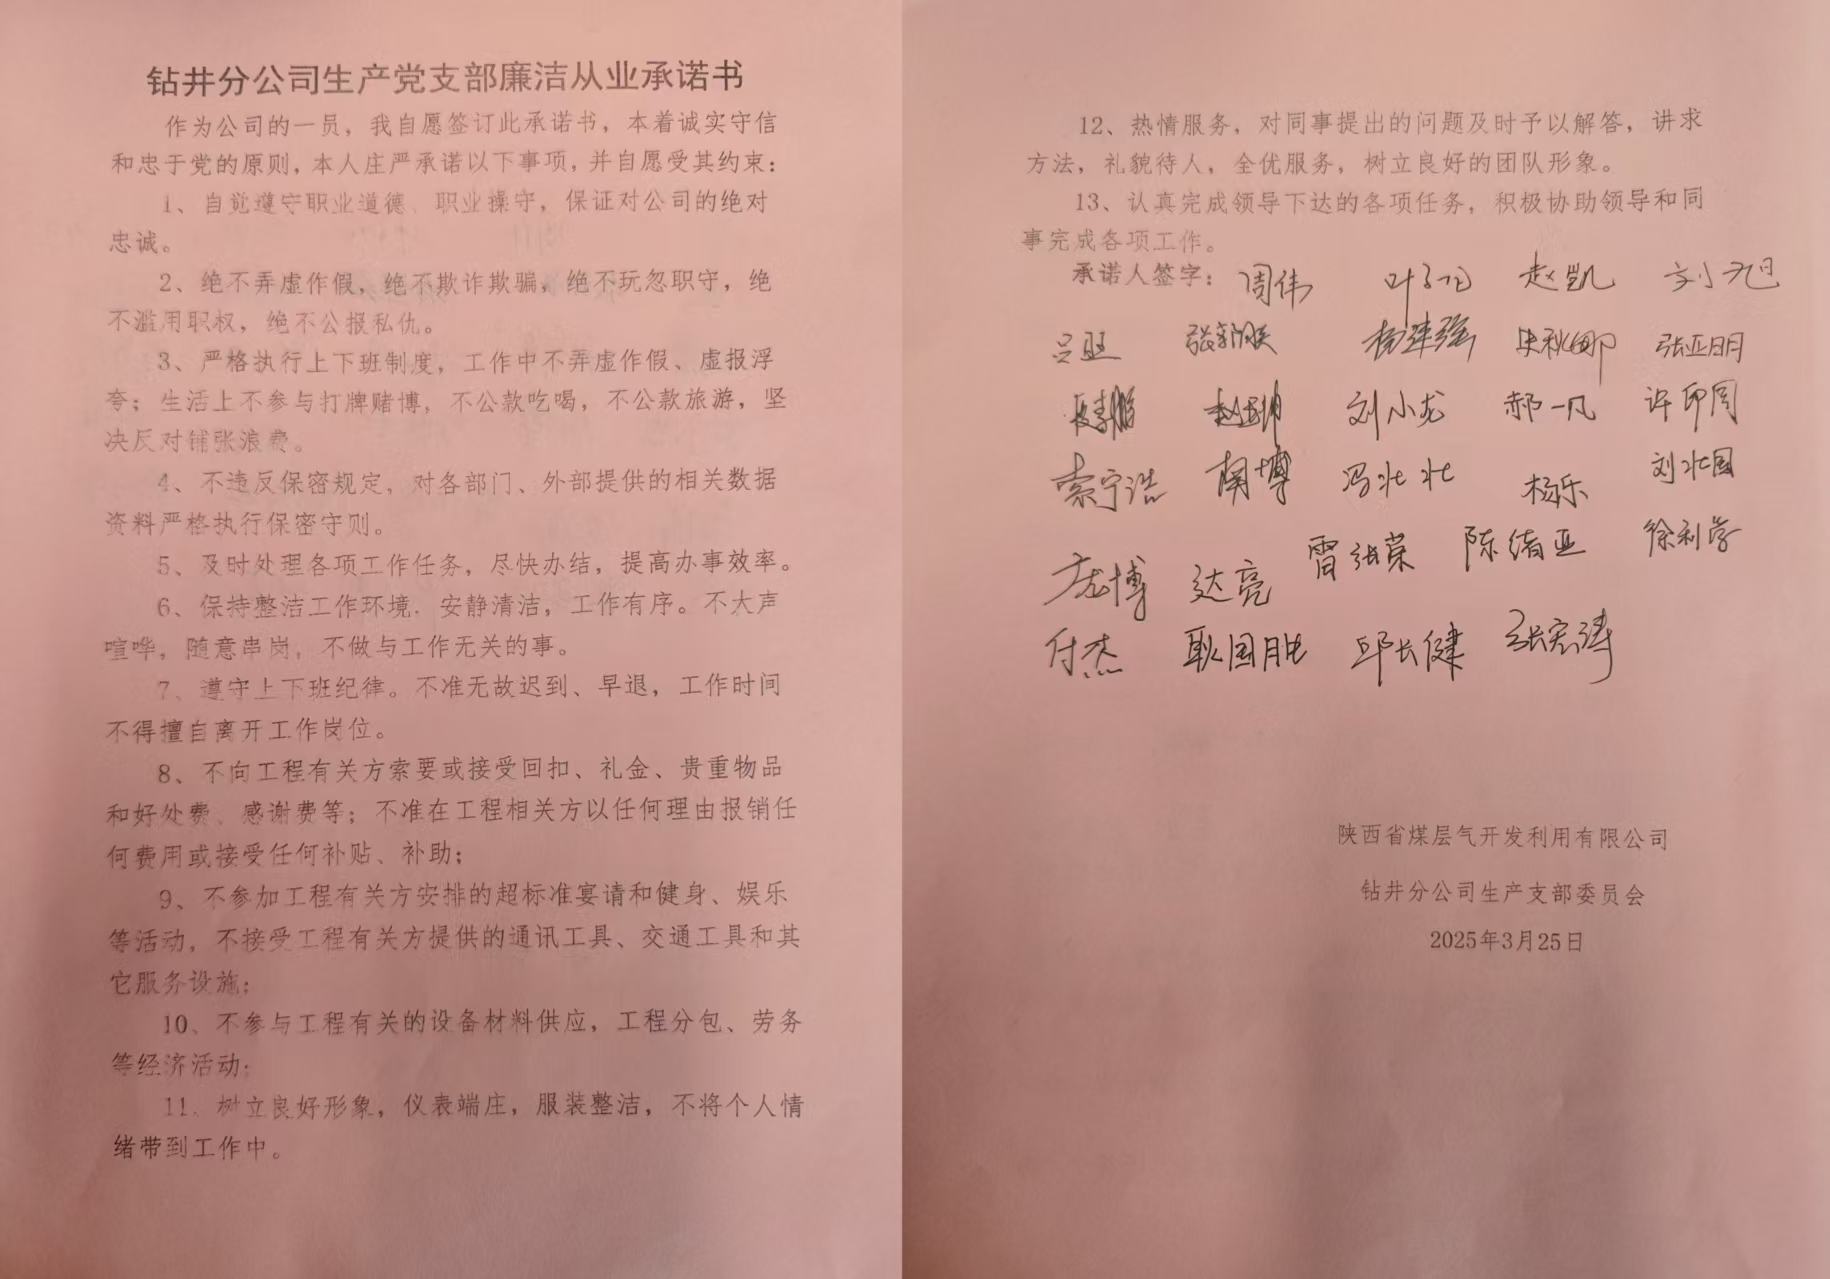 钻井分公司生产党支部廉洁从业承诺书
作为公司的一员，我自愿签订此承诺书，本着诚实守信
和忠于党的原则，本人庄严承诺以下事项，并自愿受其约束：
1、自觉遵守职业道德、职业操守，保证对公司的绝对
忠诚。
2、绝不弄虚作假，绝不欺诈欺骗，绝不玩忽职守，绝
不滥用职权，绝不公报私仇。
3、严格执行上下班制度，工作中不弄虚作假、虚报浮
夸；生活上不参与打牌赌博，不公款吃喝，不公款旅游，坚
决反对铺张浪费。
4、不违反保密规定，对各部门、外部提供的相关数据
资料严格执行保密守则。
5、及时处理各项工作任务，尽快办结，提高办事效率。
6、保持整洁工作环境，安静清洁，工作有序。不大声
喧哗，随意串岗，不做与工作无关的事。
7、遵守上下班纪律。不准无故迟到、早退，工作时间
不得擅自离开工作岗位。
8、不向工程有关方索要或接受回扣、礼金、贵重物品
和好处费、感谢费等；不准在工程相关方以任何理由报销任
何费用或接受任何补贴、补助；
9、不参加工程有关方安排的超标准宴请和健身、娱乐
等活动，不接受工程有关方提供的通讯工具、交通工具和其
它服务设施；
10、不参与工程有关的设备材料供应，工程分包、劳务
等经济活动；
11、树立良好形象，仪表端庄，服装整洁，不将个人情
绪带到工作中。
12、热情服务，对同事提出的问题及时予以解答，讲求
方法，礼貌待人，全优服务，树立良好的团队形象。
13、认真完成领导下达的各项任务，积极协助领导和同
事完成各项工作。
承诺人签字：周伟 赵凯 刘旭
吕旺 杨建强 史秋娜 张亚明
刘小龙 郝一凡 许印周
索宁浩 南博 冯壮壮 杨乐 刘壮国
庞博 达亮 陈绪亚 徐利学
付杰 耿国胜 邱长健 张宏涛
陕西省煤层气开发利用有限公司
钻井分公司生产支部委员会
2025年3月25日